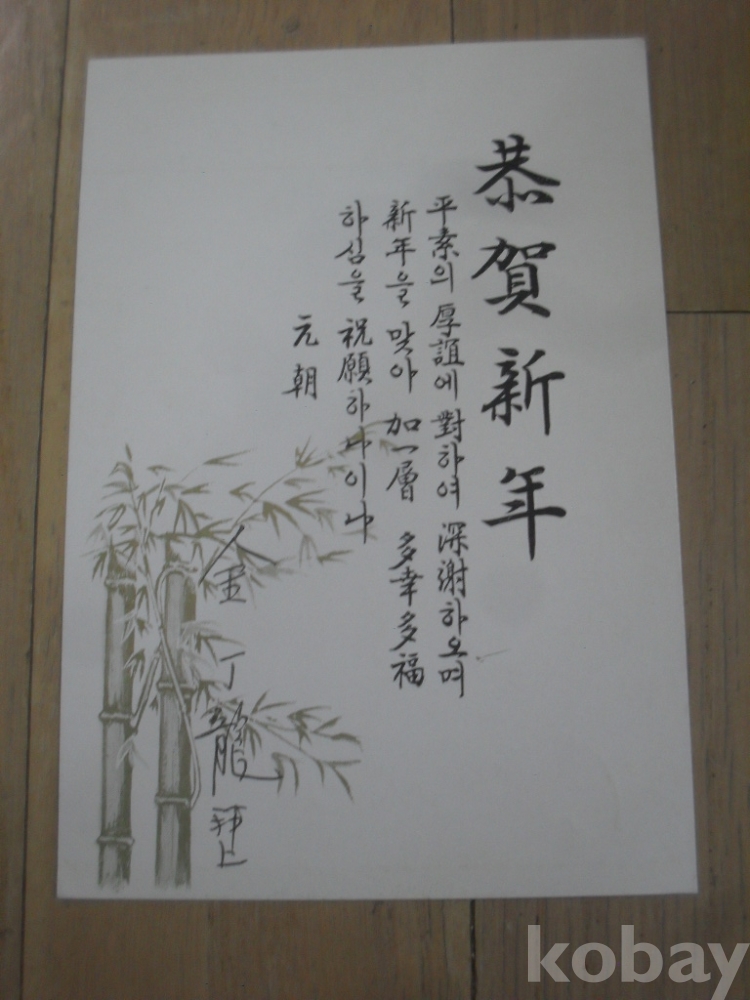 恭賀新年
平素의 厚誼에 對하여 深謝하오며
新年을 맞아 加一層 多幸多福
하심을 祝願하나이다
元朝
金丁龍 拜上
kobay